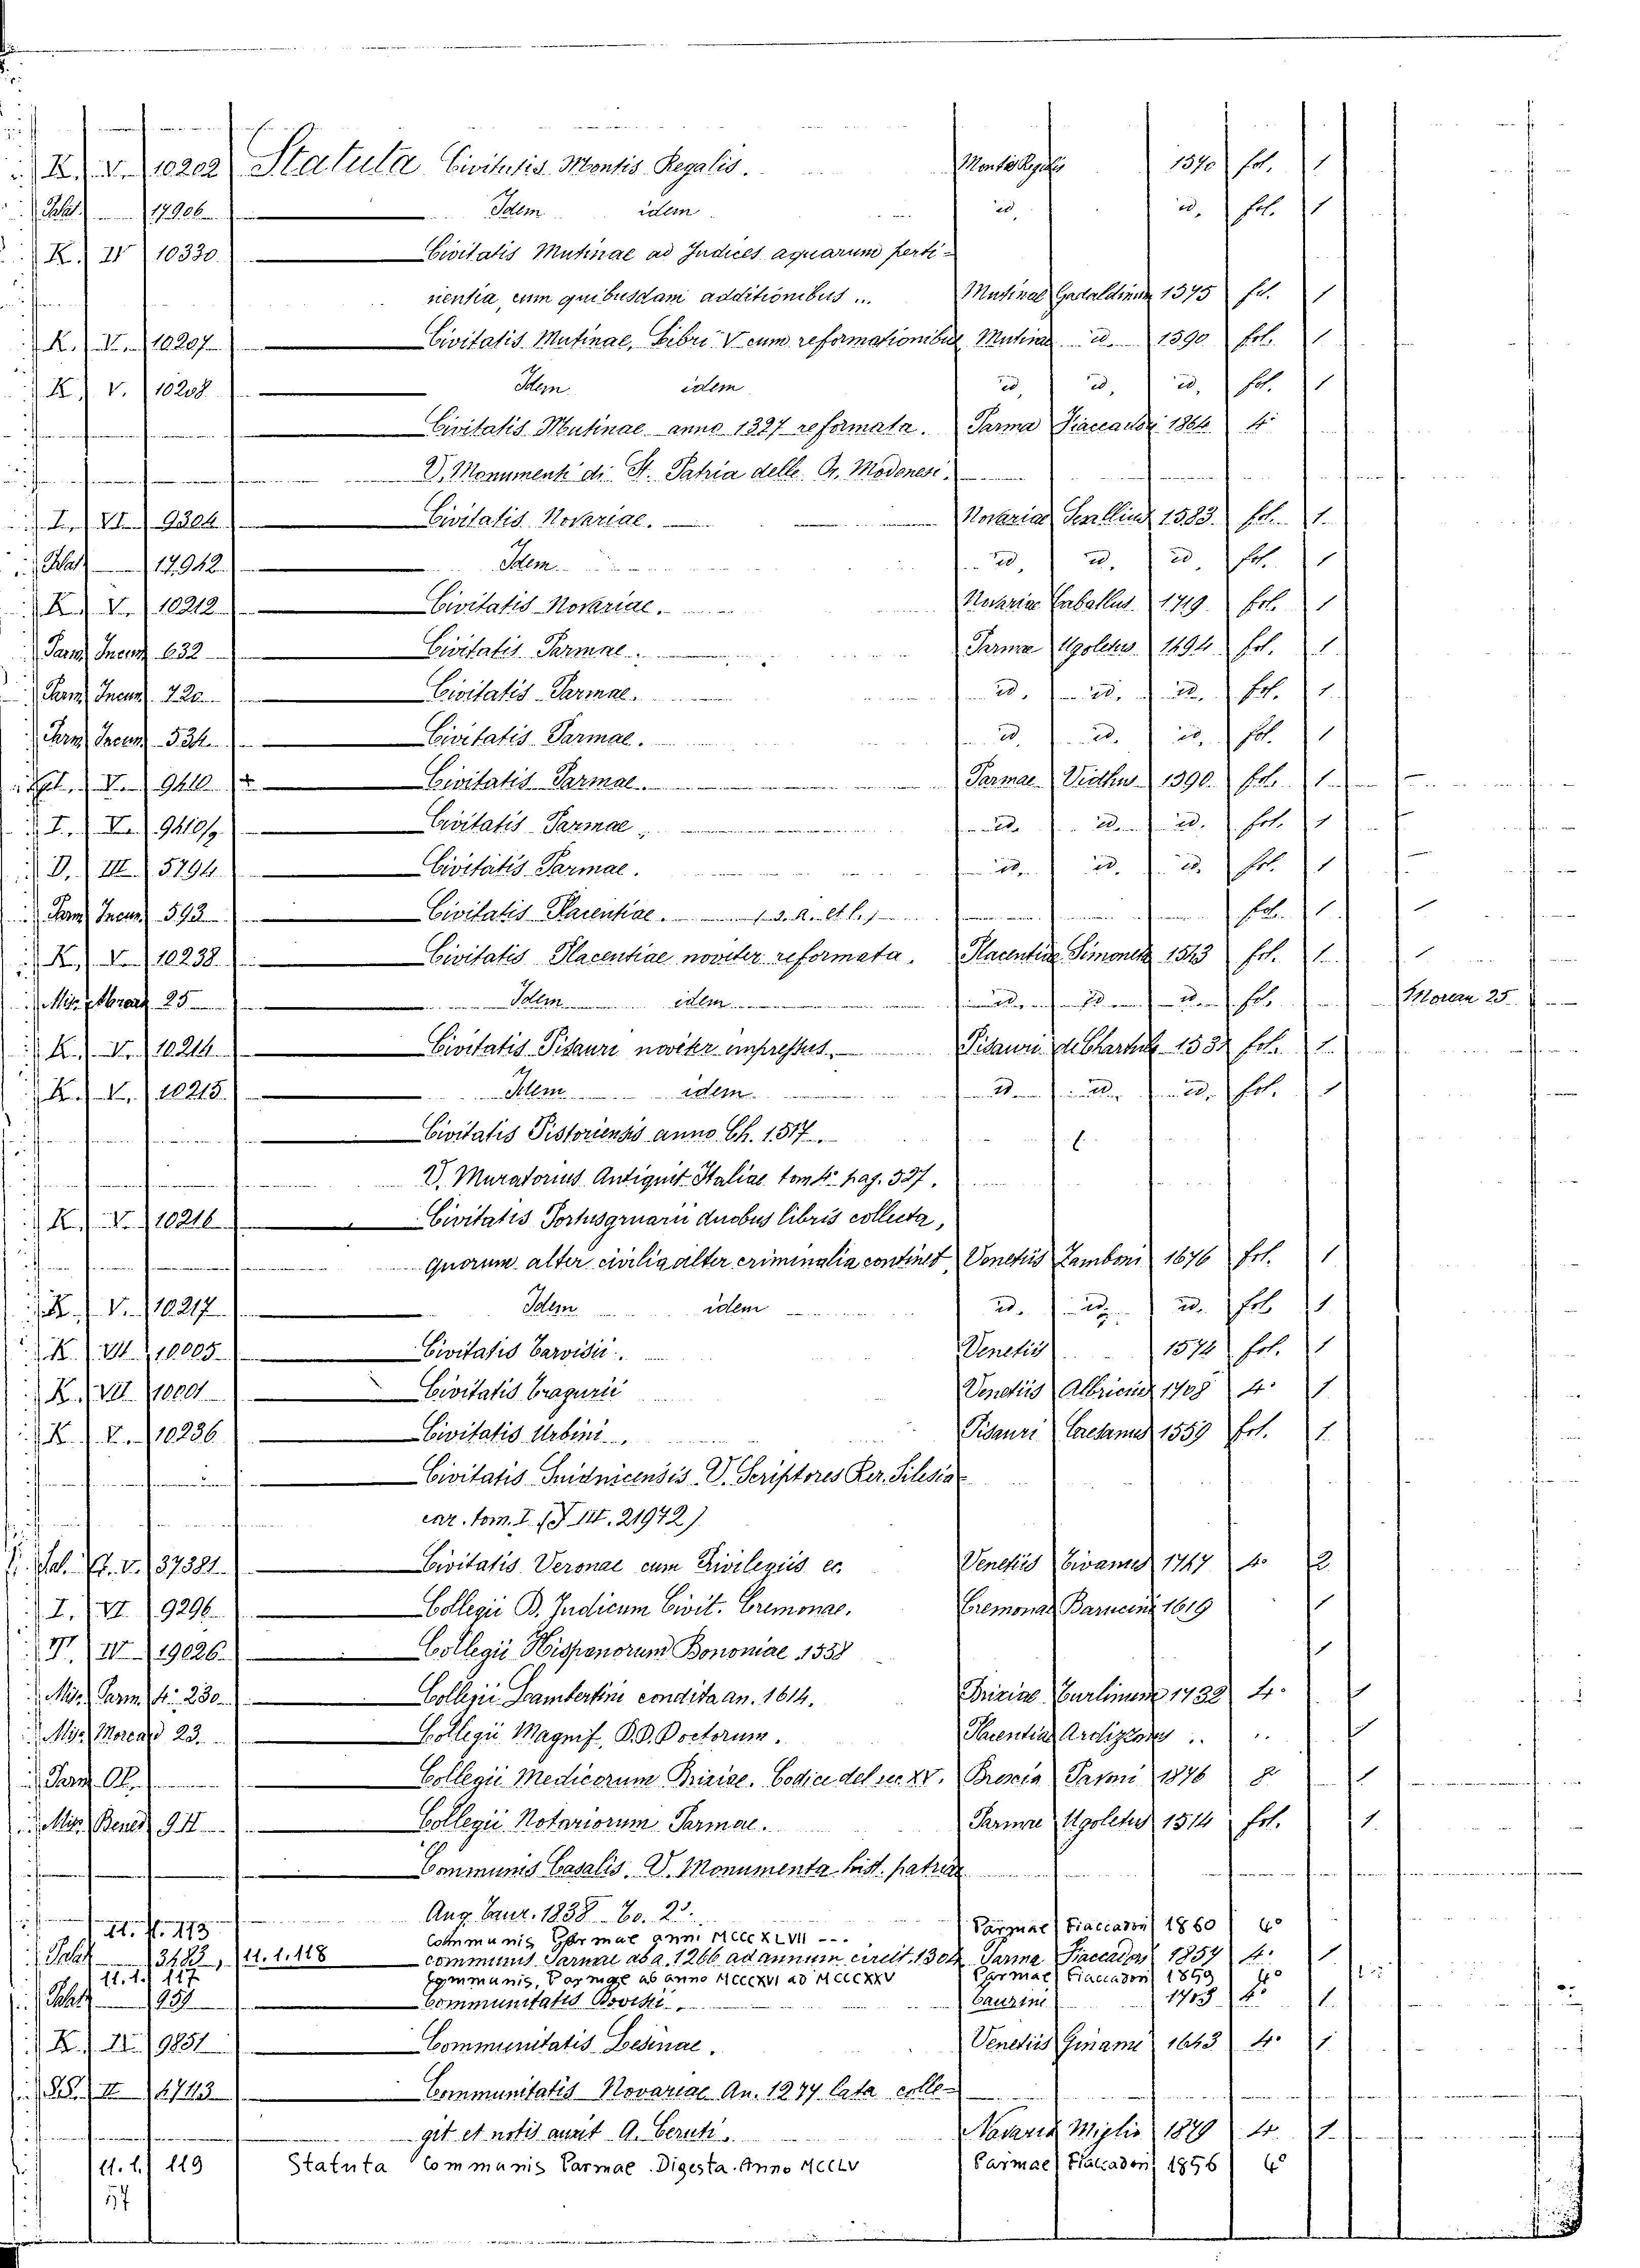 K. V. 10202 Statuta Civitatis Montis Regalis. Montis Regalis 1570 fol. 1
Palat. 17906 Idem idem id. id. fol. 1
K. IV 10330 Civitatis Mutinae ad Iudices aquarum perti-
nentia, cum quibusdam additionibus ... Mutinae Gadaldinum 1575 fol. 1
K. V. 10207 Civitatis Mutinae, Libri V cum reformationibus Mutinae id. 1590 fol. 1
K. V. 10208 Idem idem id. id. id. fol. 1
Civitatis Mutinae anno 1327 reformata. Parma Fiaccadori 1864 4°
V. Monumenti di St. Patria delle Pr. Modenesi.
I. VI 9304 Civitatis Novariae. Novariae Sesallius 1583. fol. 1.
Palat. 17942 Idem id. id. id. fol. 1
K. V. 10212 Civitatis Novariae. Novariae Caballus 1719. fol. 1
Parm. Incun. 632 Civitatis Parmae. Parmae Ugoletus 1494 fol. 1.
Parm. Incun. 720 Civitatis Parmae. id. id. id. fol. 1.
Parm. Incun. 534 Civitatis Parmae. id. id. id. fol. 1
V. 9410 Civitatis Parmae. Parmae Viothus 1590. fol. 1.
I. V. 9410/2 Civitatis Parmae. id. id. id. fol. 1
D. III 5794 Civitatis Parmae. id. id. id. fol. 1
Parm. Incun. 592 Civitatis Placentiae. fol. 1.
K. V. 10238 Civitatis Placentiae noviter reformata. Placentiae Simoneta 1543 fol. 1.
Mis. Moreau 25 Idem idem id. id. id. fol. Moreau 25
K. V. 10214 Civitatis Pisauri noviter impressus. Pisauri de Chartulis 1531 fol. 1.
K. V. 10215. Idem idem id. id. id. fol. 1
Civitatis Pistoriensis anno Ch. 1517.
V. Muratorius Antiquit Italiae tom 4° pag. 527.
K. V. 10216 Civitatis Portusgruarii duobus libris collecta,
quorum alter civilia alter criminalia continet Venetiis Zamboni 1676 fol. 1
K. V. 10217 Idem idem id. id. id. fol 1
K. VII 10005 Civitatis Tarvisii. Venetiis 1574 fol. 1
K. VII 10001 Civitatis Tragurii Venetiis Albricius 1708 4° 1.
K. V. 10236 Civitatis Urbini. Pisauri Caesanus 1559 fol. 1.
Civitatis Suidnicensis V. Scriptores Rer. Silesia
car. tom. I. (J III. 21972)
Pal. V. 37381 Civitatis Veronae cum Privilegiis ec. Venetiis 1747 4° 2.
I. VI 9296. Collegii B. Iudicum Civit. Cremonae. Cremonae Barucinus 1619 1
IV 19026 Collegii Hispanorum Bononiae 1558 1
Mis. Parm. 4° 230. Collegii Lambertini condita an. 1614. Brixiae Turlinum 1738 4° 1
Mis. Moreau 23. Collegii Magnif. D.D. Doctorum. Placentiae Ardizzonus .. .. 1
Parm. Collegii Medicorum Brixiae. Codice del sec XV. Brescia Pavoni 1876 8° 1
Mis. Bened. 911 Collegii Notariorum Parmae. Parmae Ugoletus 1514 fol. 1.
Communis Casalis. V. Monumenta hist. patriae
Aug. Taur. 1838 To. 2°.
11. 113 Communis Parmae anni MCCCXLVII --- Parmae Fiaccadori 1860 4°
Palat. 13483, 11. 1. 118 communis Parmae ab a. 1266 ad annum circit. 1304 Parma Fiaccadori 1857 4° 1
11. 1. 117 Communis, Parmae ab anno MCCCXVI ad MCCCXXV Parmae Fiaccadori 1859 4° 1
Palat. 957 Communitatis Bovisii. Taurini 4° 1.
K. IV. 9851 Communitatis Lesinae. Venetiis Ginami 1643 4° 1
II 4743 Communitatis Novariae An. 1277 lata colle-
git et notis auxit A. Ceruti. Novaria Miglio 1879 4° 1.
11. 1. 119 Statuta Communis Parmae Digesta Anno MCCLV Parmae Fiaccadori 1856 4°
57